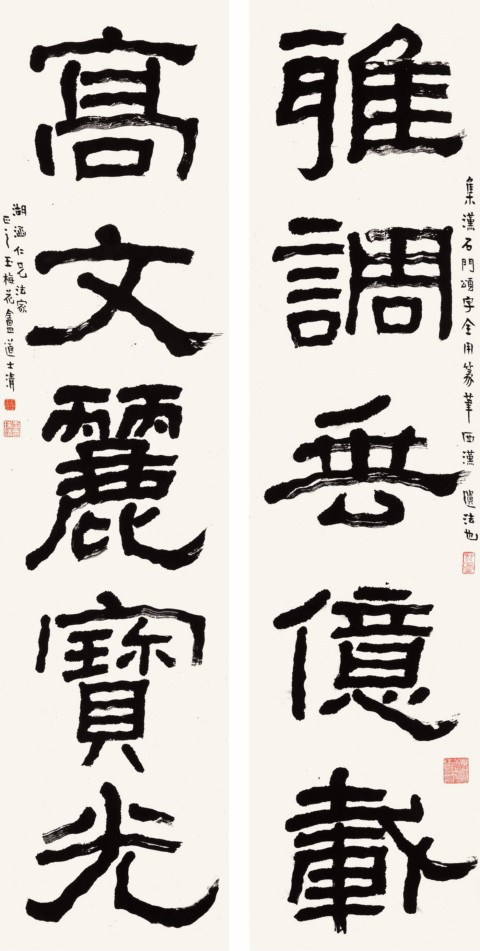 集漢石門頌字全用篆筆西漢遺法也
雅調垂億載
高文麗寶光
湖涵仁兄法家
正之玉梅花盦道士清